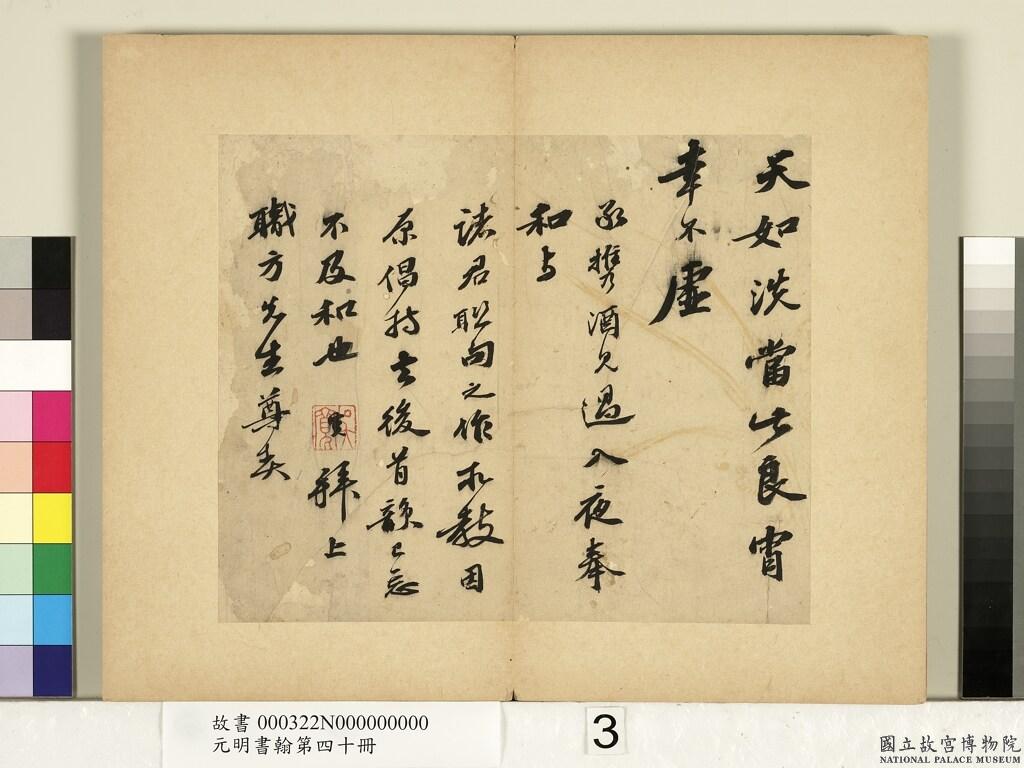 天如洗當此良宵
幸不虛
承攜酒見過入夜奉
和與
諸君聯句之作求教因
原倡持去後首韻已忘
不及和也 寬 拜上
職方先生尊契
故書 000322N000000000
元明書翰第四十冊
3
國立故宮博物院
NATIONAL PALACE MUSEUM